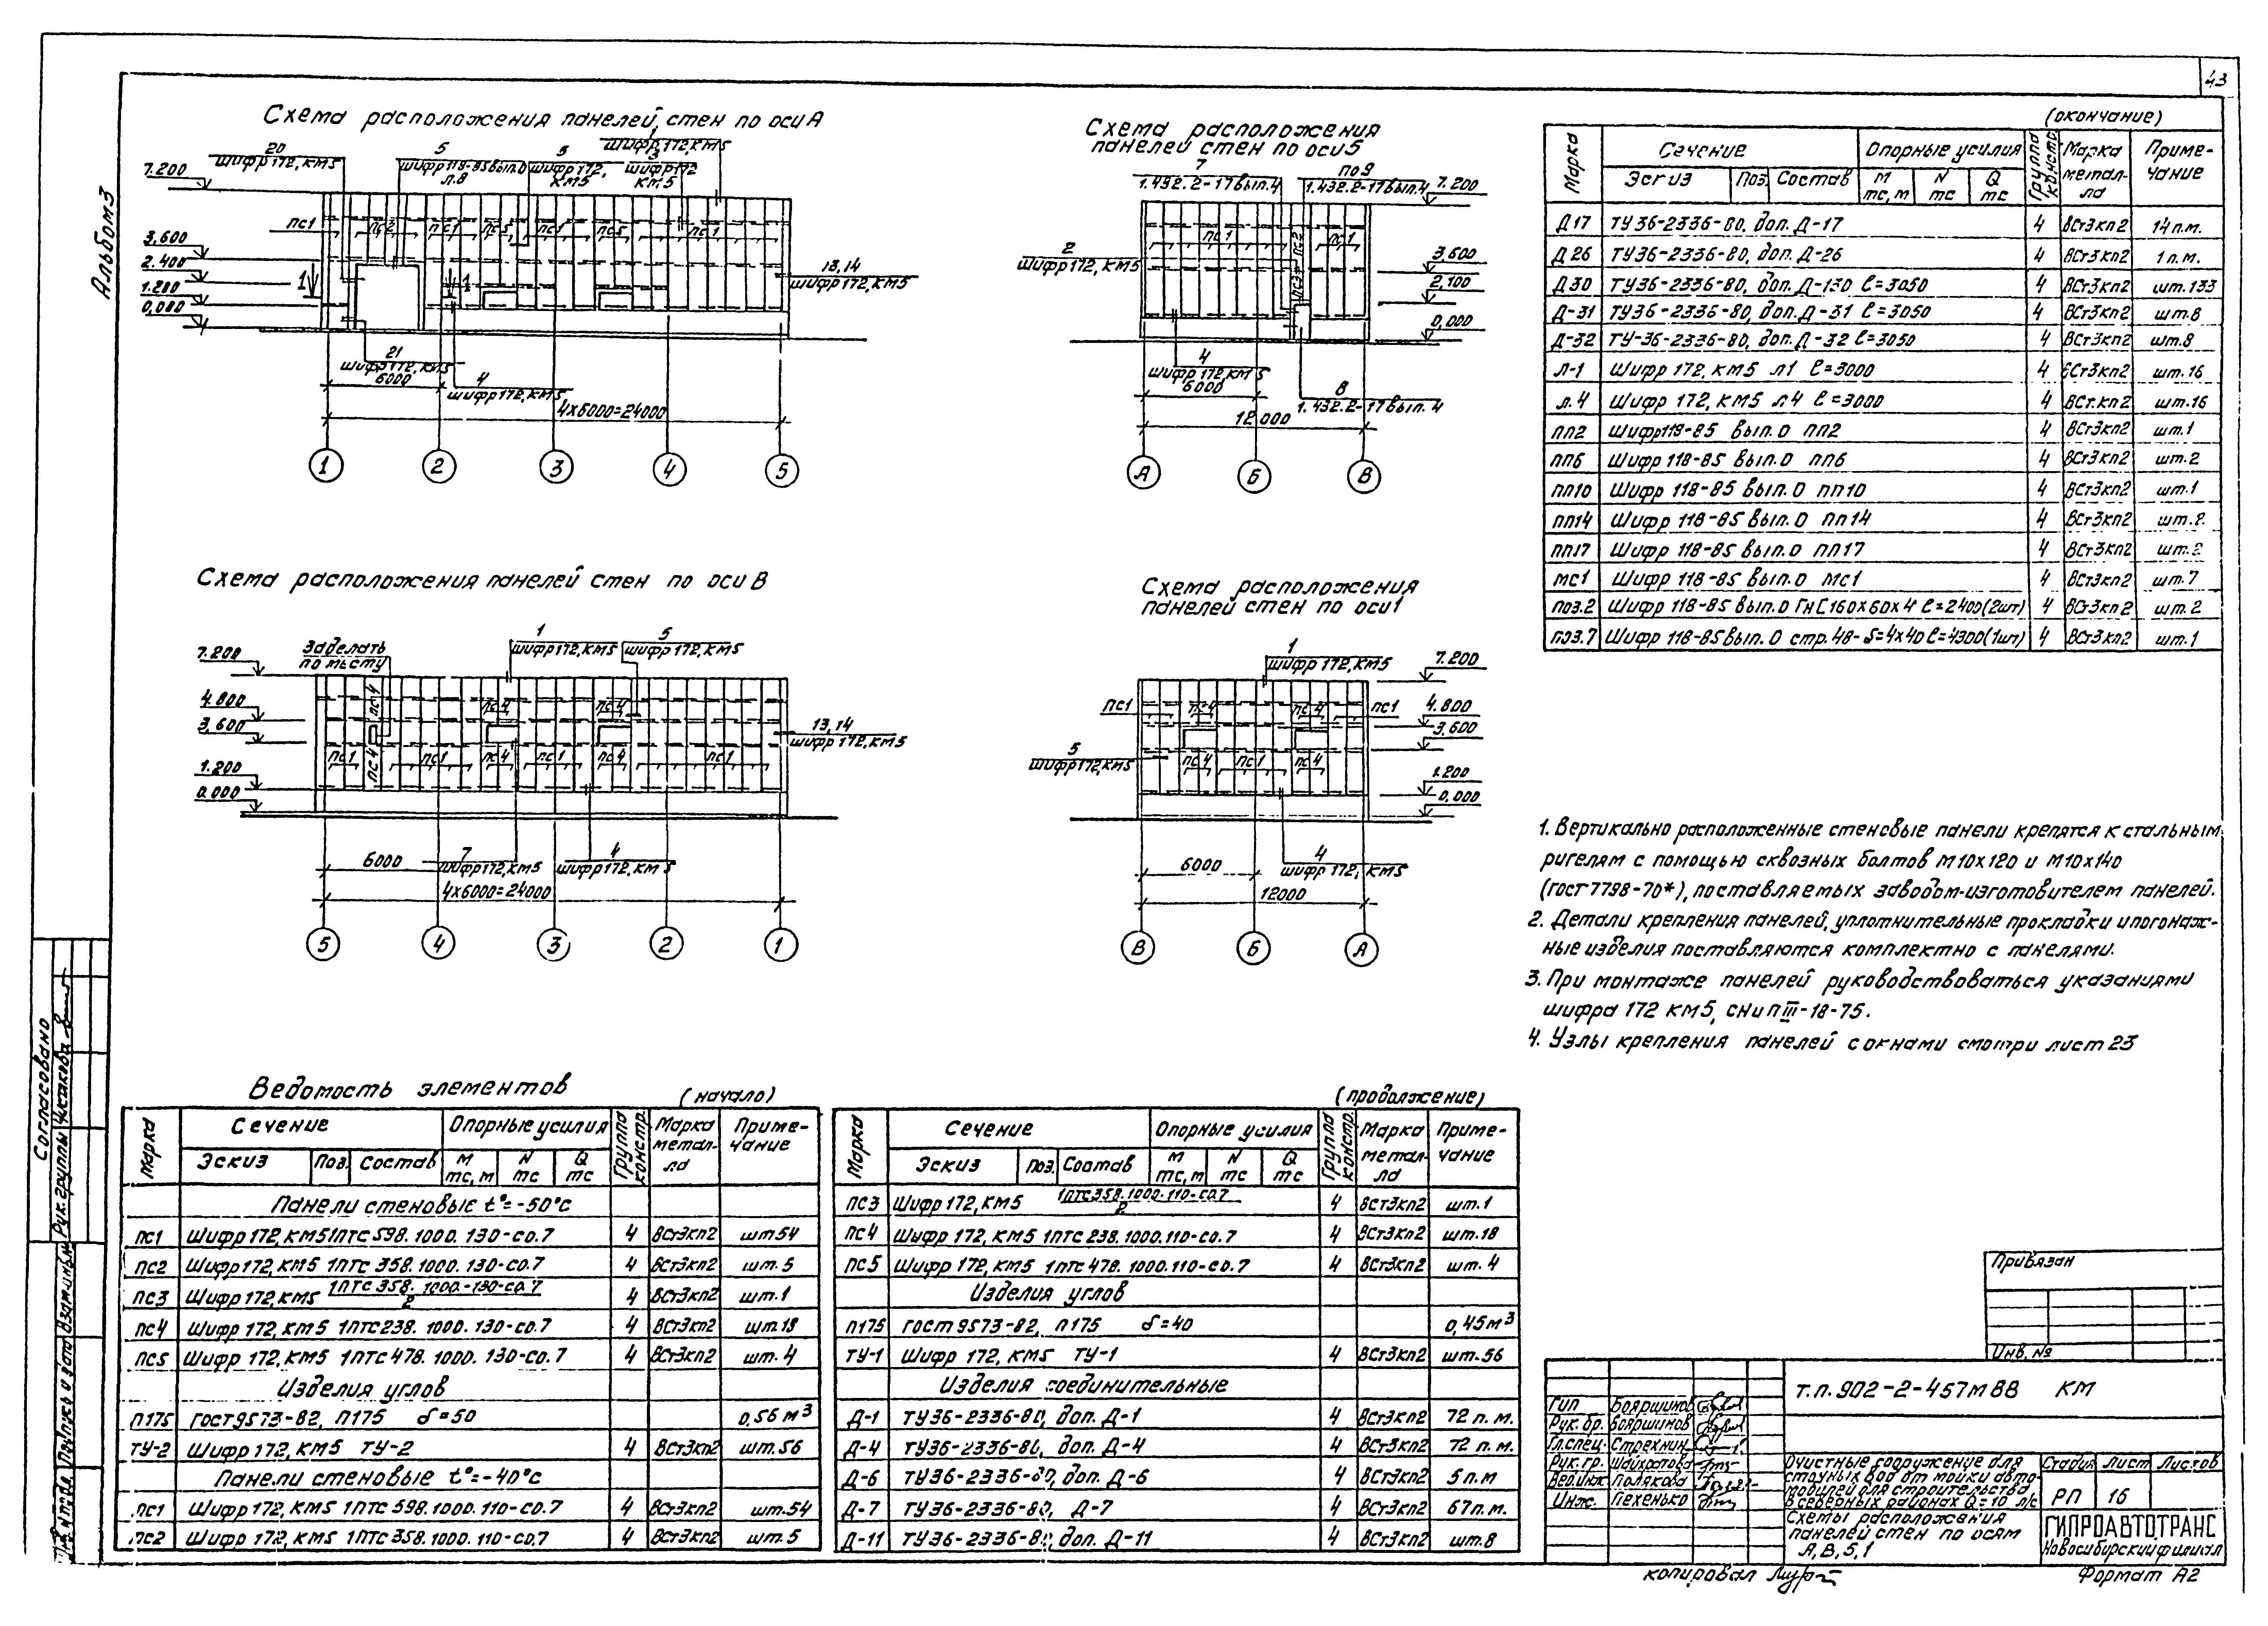 43
Альбом 3
Схема расположения панелей стен по оси А
20
шифр 172, КМ5
5
шифр 118-85 вып.0
л.8
5
шифр 172,
КМ5
1
шифр 172, КМ5
3
шифр 172
КМ5
7.200
3.600
2.400
1.200
0,000
пс1
пс2
пс1
пс5
пс1
пс5
пс1
1
1
13,14
шифр 172, КМ5
21
шифр 172, КМ5
4
шифр 172, КМ5
6000
4х6000=24000
1
2
3
4
5
Схема расположения
панелей стен по оси 5
7
1.432.2-17 вып.4
по 9
1.432.2-17 вып.4
7.200
3,600
2,100
0,000
пс1
пс2
пс3
пс1
2
шифр 172, КМ5
4
шифр 172, КМ5
8
1.432.2-17 вып. 4
6000
12000
А
Б
В
Схема расположения панелей стен по оси В
Заделать
по месту
1
шифр 172, КМ5
5
шифр 172, КМ5
7.200
4.800
3,600
1.200
0.000
пс4
пс4
пс4
пс1
пс4
пс1
пс4
пс1
пс4
пс1
13,14
шифр 172, КМ5
7
шифр 172, КМ5
4
шифр 172, КМ5
6000
4х6000=24000
5
4
3
2
1
Схема расположения
панелей стен по оси 1
1
шифр 172, КМ5
7.200
4.800
3,600
1.200
0,000
пс1
пс4
пс4
пс1
пс4
пс1
пс4
5
шифр 172, КМ5
4
шифр 172, КМ5
6000
12000
В
Б
А
(окончание)
Марка Сечение Опорные усилия Группа констр. Марка метал-ла Приме-чание
Эскиз Поз. Состав М тс,м N тс Q тс
Д17 ТУ 36-2336-80, доп. Д-17 4 ВСт3кп2 14 п.м.
Д26 ТУ36-2336-80, доп. Д-26 4 ВСт3кп2 1 п.м.
Д30 ТУ36-2336-80, доп. Д-130 ℓ=3050 4 ВСт3кп2 шт.133
Д-31 ТУ36-2336-80, доп. Д-31 ℓ=3050 4 ВСт3кп2 шт.8
Д-32 ТУ-36-2336-80, доп. Д-32 ℓ=3050 4 ВСт3кп2 шт.8
Л-1 Шифр 172, КМ5 Л1 ℓ=3000 4 ВСт3кп2 шт.16
Л.4 Шифр 172, КМ5 Л4 ℓ=3000 4 ВСт.кп2 шт.16
ПП2 Шифр 118-85 вып.0 ПП2 4 ВСт3кп2 шт.1
ПП6 Шифр 118-85 вып.0 ПП6 4 ВСт3кп2 шт.2
ПП10 Шифр 118-85 вып.0 ПП10 4 ВСт3кп2 шт.1
ПП14 Шифр 118-85 вып.0 ПП14 4 ВСт3кп2 шт.2
ПП17 Шифр 118-85 вып.0 ПП17 4 ВСт3кп2 шт.2
МС1 Шифр 118-85 вып.0 МС1 4 ВСт3кп2 шт.7
поз.2 Шифр 118-85 вып.0 Гн[160х60х4 ℓ=2400(2шт) 4 ВСт3кп2 шт.2
поз.7 Шифр 118-85 вып.0 стр.48- S=4х40 ℓ=4300(1шт) 4 ВСт3кп2 шт.1
1. Вертикально расположенные стеновые панели крепятся к стальным
ригелям с помощью сквозных болтов М10х120 и М10х140
(ГОСТ 7798-70*), поставляемых заводом-изготовителем панелей.
2. Детали крепления панелей, уплотнительные прокладки и погонаж-
ные изделия поставляются комплектно с панелями.
3. При монтаже панелей руководствоваться указаниями
шифра 172 КМ5, СНиП III-18-75.
4. Узлы крепления панелей с окнами смотри лист 23
Ведомость элементов
(начало)
Марка Сечение Опорные усилия Группа констр. Марка метал-ла Приме-чание
Эскиз Поз. Состав М тс,м N тс Q тс
Панели стеновые t°=-50°С
ПС1 Шифр 172, КМ5 1ПТС 598.1000.130-С0.7 4 ВСт3кп2 шт.54
ПС2 Шифр 172, КМ5 1ПТС 358.1000.130-С0.7 4 ВСт3кп2 шт.5
ПС3 Шифр 172, КМ5 1ПТС 358.1000.-130-С0.7/2 4 ВСт3кп2 шт.1
ПС4 Шифр 172, КМ5 1ПТС238.1000.130-С0.7 4 ВСт3кп2 шт.18
ПС5 Шифр 172, КМ5 1ПТС478.1000.130-С0.7 4 ВСт3кп2 шт.4
Изделия углов
П175 ГОСТ9573-82, П175 δ=50 0,56 м³
ТУ-2 Шифр 172, КМ5 ТУ-2 4 ВСт3кп2 шт.56
Панели стеновые t°=-40°С
ПС1 Шифр 172, КМ5 1ПТС 598.1000.110-С0.7 4 ВСт3кп2 шт.54
ПС2 Шифр 172, КМ5 1ПТС 358.1000.110-С0.7 4 ВСт3кп2 шт.5
(продолжение)
Марка Сечение Опорные усилия Группа констр. Марка метал-ла Приме-чание
Эскиз Поз. Состав М тс,м N тс Q тс
ПС3 Шифр 172, КМ5 1ПТС358.1000.110-С0.7/2 4 ВСт3кп2 шт.1
ПС4 Шифр 172, КМ5 1ПТС 238.1000.110-С0.7 4 ВСт3кп2 шт.18
ПС5 Шифр 172, КМ5 1ПТС 478.1000.110-С0.7 4 ВСт3кп2 шт.4
Изделия углов
П175 ГОСТ9573-82, П175 δ=40 0,45м³
ТУ-1 Шифр 172, КМ5 ТУ-1 4 ВСт3кп2 шт.56
Изделия соединительные
Д-1 ТУ36-2336-80, доп. Д-1 4 ВСт3кп2 72 п.м.
Д-4 ТУ36-2336-80, доп. Д-4 4 ВСт3кп2 72 п.м.
Д-6 ТУ36-2336-80, доп. Д-6 4 ВСт3кп2 5 п.м
Д-7 ТУ36-2336-80, Д-7 4 ВСт3кп2 67п.м.
Д-11 ТУ36-2336-80, доп. Д-11 4 ВСт3кп2 шт.8
Согласовано
Рук. группы Ускакова
Подпись и дата
Привязан
Инв. №
т.п. 902-2-457м88 КМ
ГИП Бояршинов
Рук. бр. Бояршинов
Гл.спец. Стрехнин
Рук. гр.
Вед.инж. Полякова
Инж. Пехенько
Очистные сооружение для
сточных вод от мойки авто-
мобилей для строительства
в северных районах Q=10 л/с
Стадия Лист Листов
РП 16
Схемы расположения
панелей стен по осям
А, В, 5, 1
ГИПРОАВТОТРАНС
Новосибирский филиал
Копировал
Формат А2